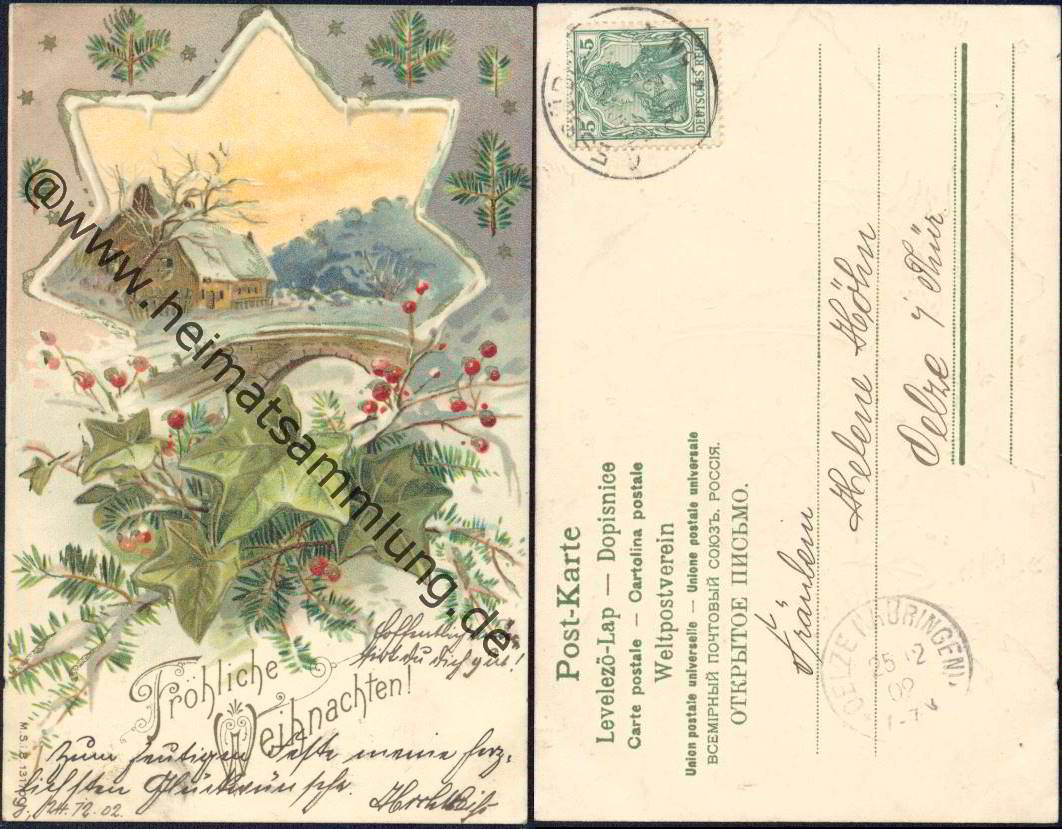 @www.heimatsammlung.de
Hoffentlich
du dich gut!
Fröhliche
Weihnachten!
Zum heutigen Feste meine herz-
lichsten Glückwünsche.
24.12.02.
M.S.i.B.
5 5
DEUTSCHES REICH
Post-Karte
Levelező-Lap — Dopisnice
Carte postale — Cartolina postale
Weltpostverein
Union postale universelle — Unione postale universale
ВСЕМІРНЫЙ ПОЧТОВЫЙ СОЮЗЪ. РОССІЯ.
ОТКРЫТОЕ ПИСЬМО.
Fräulein
Helene Höhn
Oelze i/Thür.
OELZE (THÜRINGEN)
25 12
02